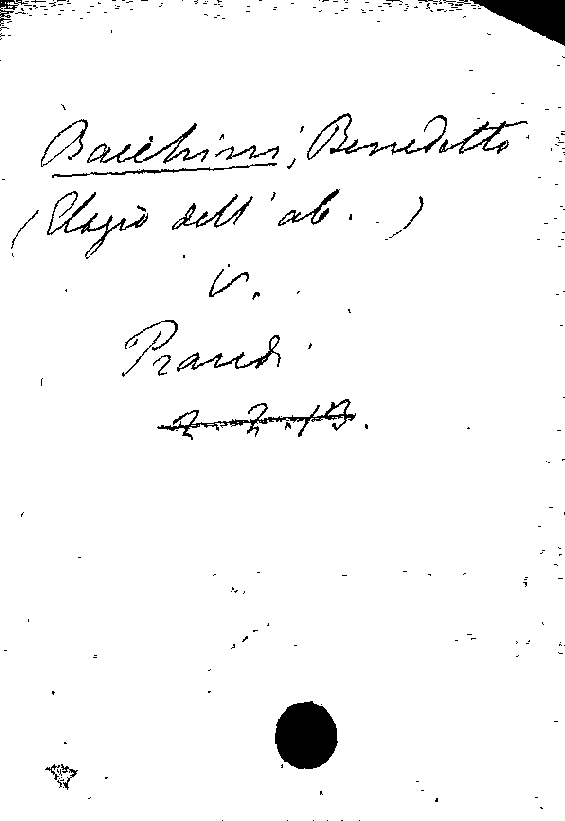 Bacchini, Benedetto
(Elogio dell' ab. )
v.
Prandi
2.2.13.